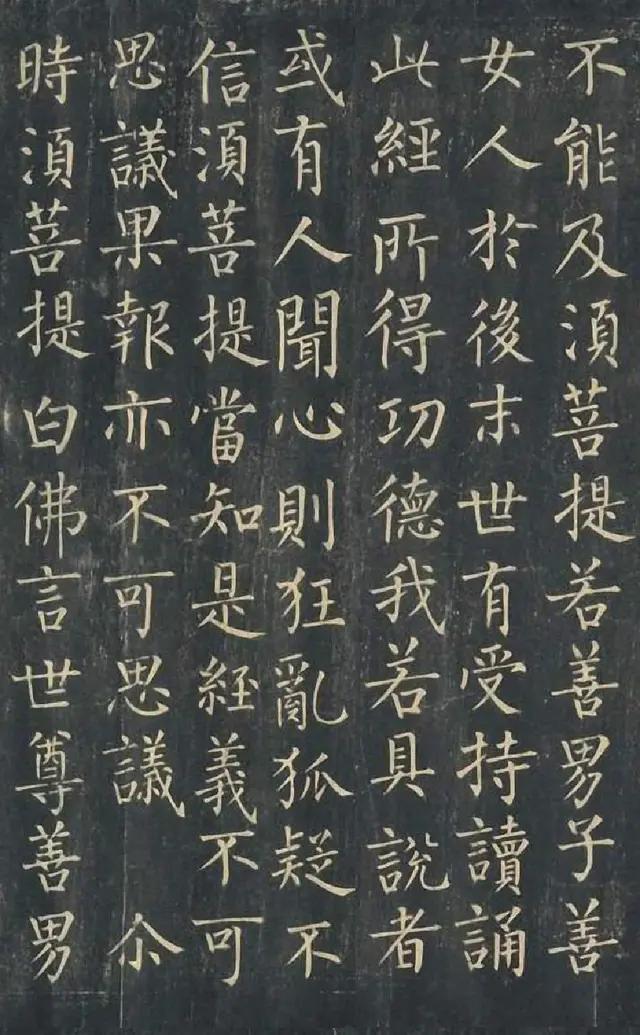 不能及湏菩提若善男子善
女人於後末世有受持讀誦
此經所得功德我若具說者
或有人聞心則狂亂狐疑不
信湏菩提當知是經義不可
思議果報亦不可思議尒
時湏菩提白佛言世尊善男